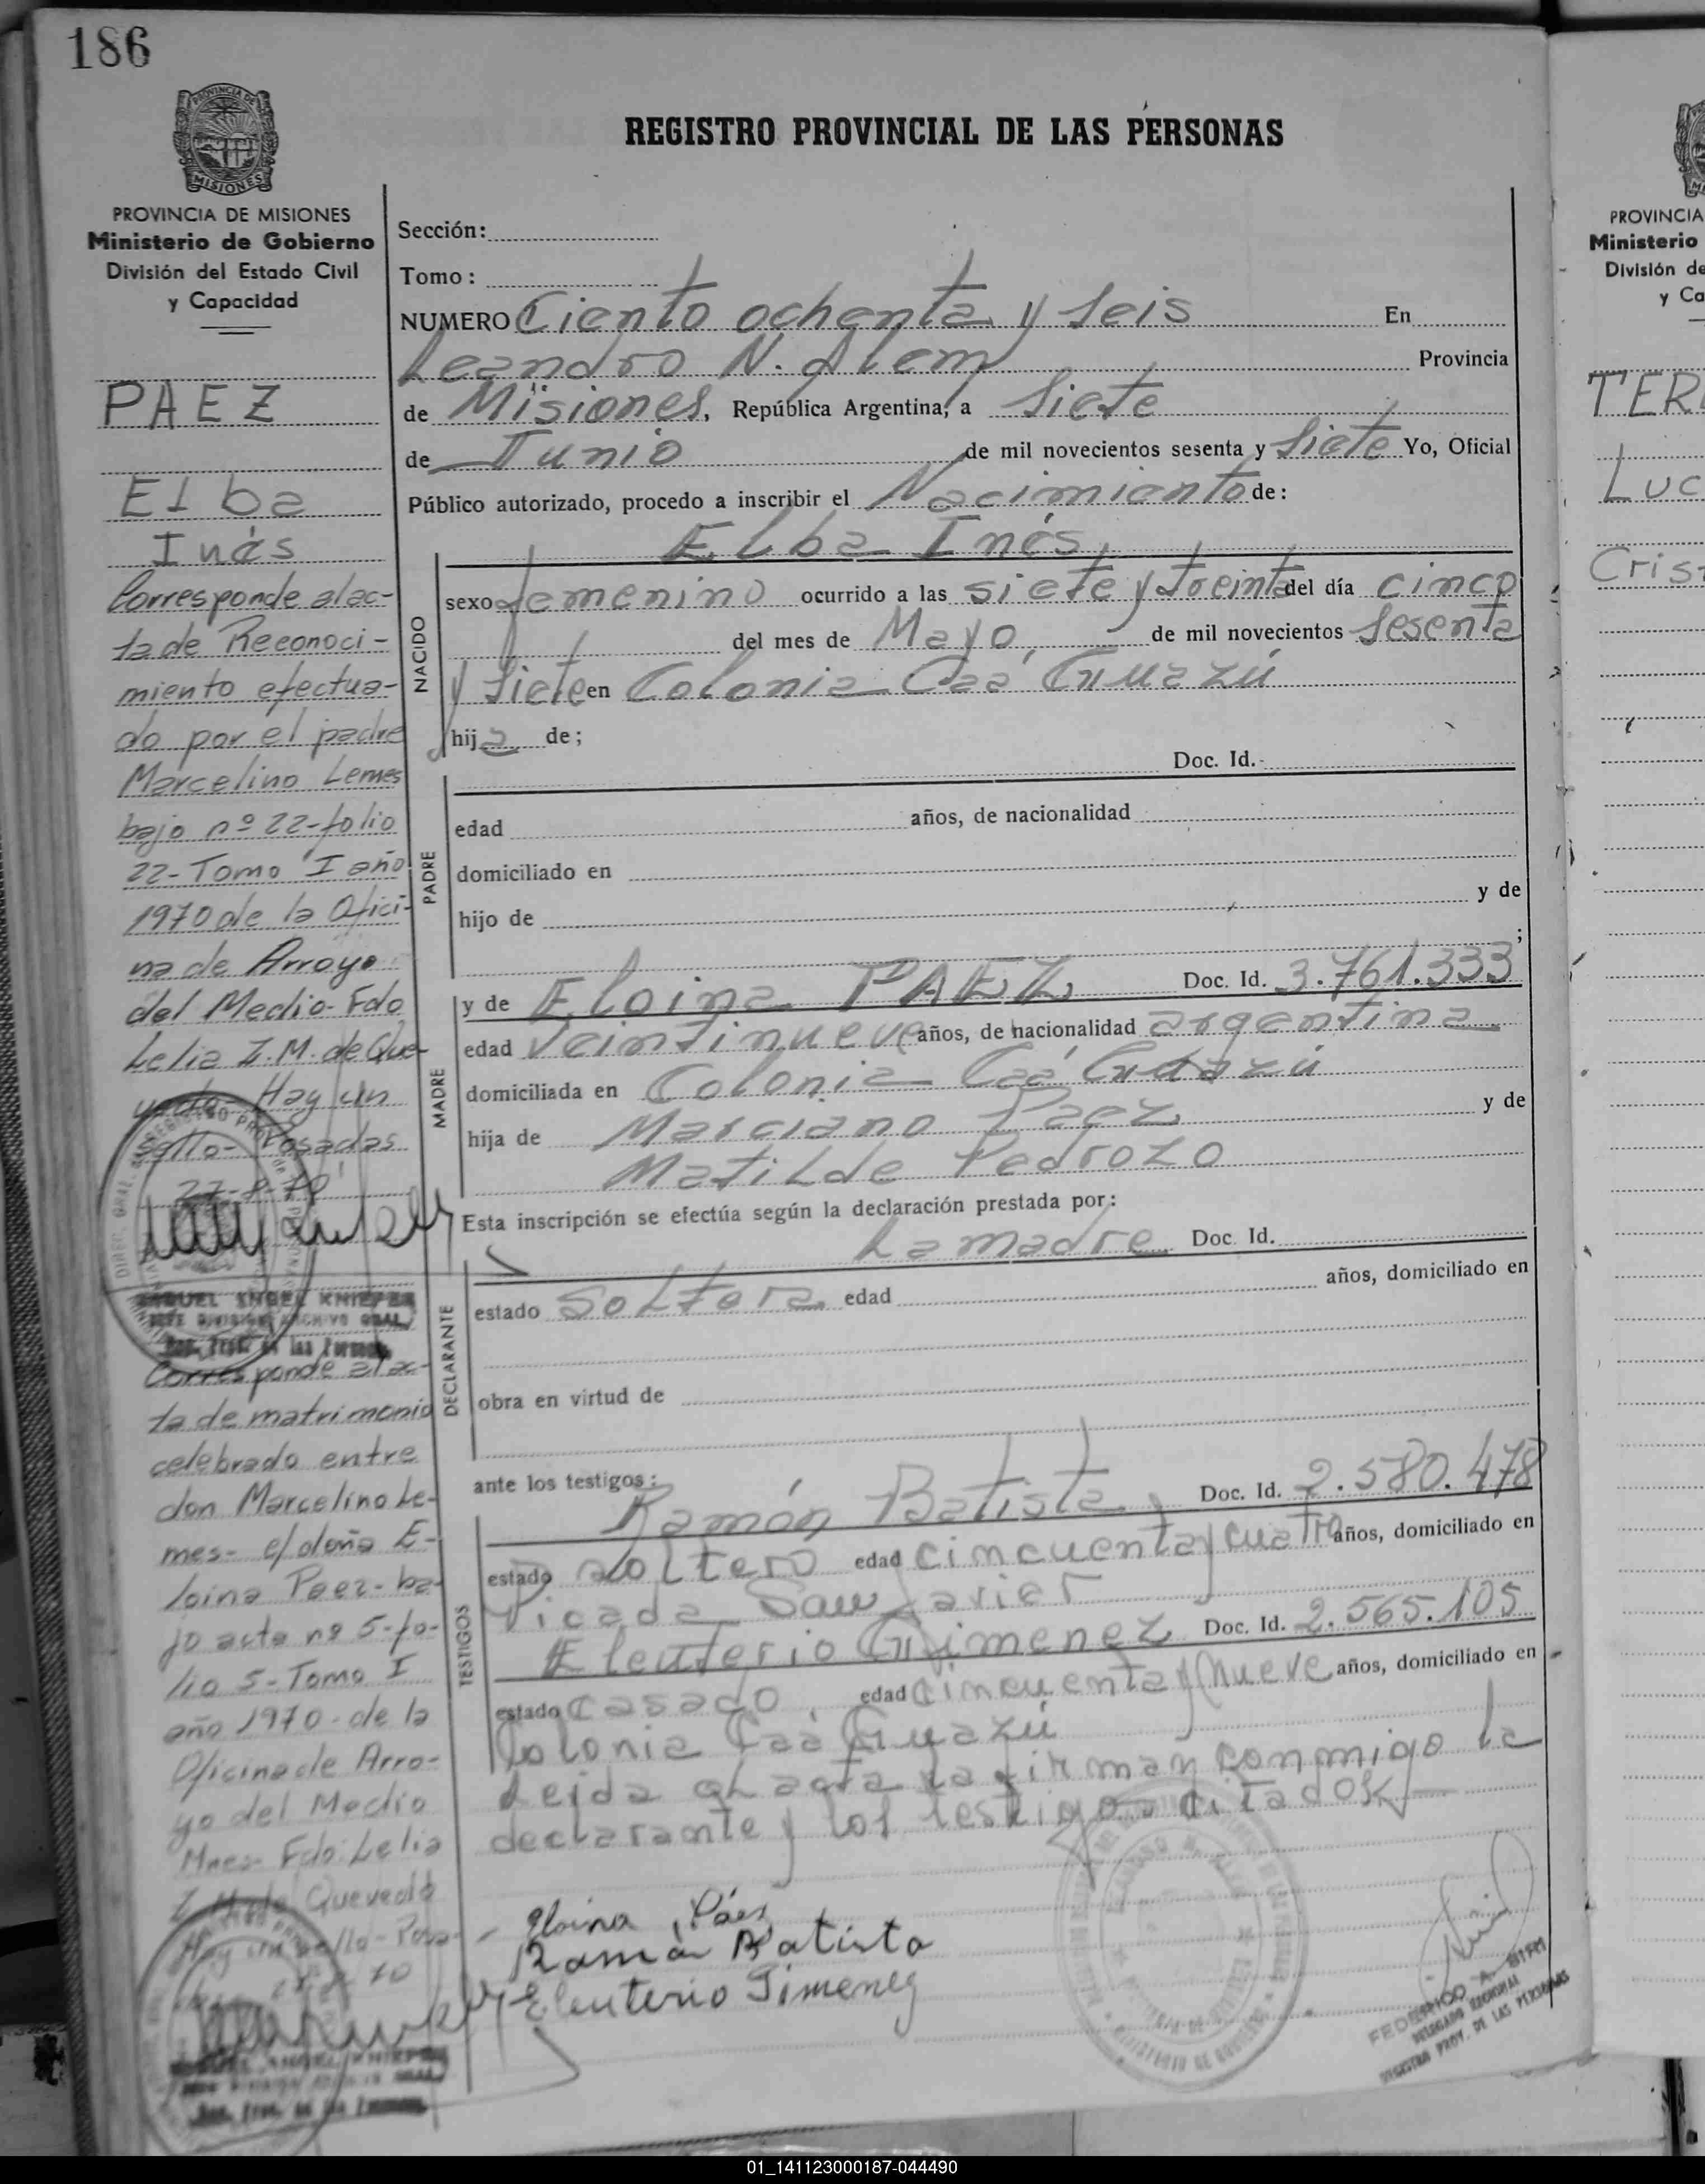 186
REGISTRO PROVINCIAL DE LAS PERSONAS
PROVINCIA DE
MISIONES
PROVINCIA DE MISIONES
Ministerio de Gobierno
División del Estado Civil
y Capacidad
PAEZ
Elba
Inés
Corresponde al ac-
ta de Reconoci-
miento efectua-
do por el padre
Marcelino Lemes
bajo nº 22-folio
22-Tomo I año
1970 de la Ofici-
na de Arroyo
del Medio-Fdo
Lelia Z.M. de Que-
Hay un
sello- Posadas
27-8-70
MIGUEL ANGEL KNIEFER
JEFE DIVISION ARCHIVO GRAL.
Reg. Prov. de las Personas
Corresponde al ac-
ta de matrimonio
celebrado entre
don Marcelino Le-
mes- c/ doña E-
loina Paez- ba-
jo acta nº 5-fo-
lio 5-Tomo I
año 1970-de la
Oficina de Arro-
yo del Medio
Mnes- Fdo: Lelia
Z. M. de Quevedo
Hay un sello-Posa-
Reg. Prov. de las Personas
Sección:
Tomo:
NUMERO Ciento ochenta y seis En
Leandro N. Alem Provincia
de Misiones, República Argentina, a Siete
de Junio de mil novecientos sesenta y Siete Yo, Oficial
Público autorizado, procedo a inscribir el Nacimiento de:
Elba Inés,
NACIDO
sexo femenino ocurrido a las siete y treinta del día cinco
del mes de Mayo, de mil novecientos Sesenta
y Siete en Colonia Caá Guazú
hija de;
Doc. Id.-
PADRE
edad años, de nacionalidad
domiciliado en
hijo de y de
;
MADRE
y de Eloina PAEZ, Doc. Id. 3.761.333
edad Veintinueve años, de nacionalidad argentina
domiciliada en Colonia Caá Guazú
hija de Marciano Paez y de
Matilde Pedrozo
Esta inscripción se efectúa según la declaración prestada por:
La madre Doc. Id.
DECLARANTE
estado Soltera edad años, domiciliado en
obra en virtud de
ante los testigos:
TESTIGOS
Ramón Batista, Doc. Id. 2.580.478
estado soltero edad cincuenta y cuatro años, domiciliado en
Picada San Javier
Eleuterio Gimenez Doc. Id. 2.565.105
estado casado, edad cincuenta y nueve años, domiciliado en
Colonia Caá Guazú
Leida el acta la firman conmigo la
declarante y los testigos citados
Eloina Páez
Ramón Batista
Eleuterio Gimenez
FEDERICO A.
DELEGADO REGIONAL
REGISTRO PROV. DE LAS PERSONAS
PROVINCIA
Ministerio
División de
y Ca
TER
Luc
Crist
01_141123000187-044490